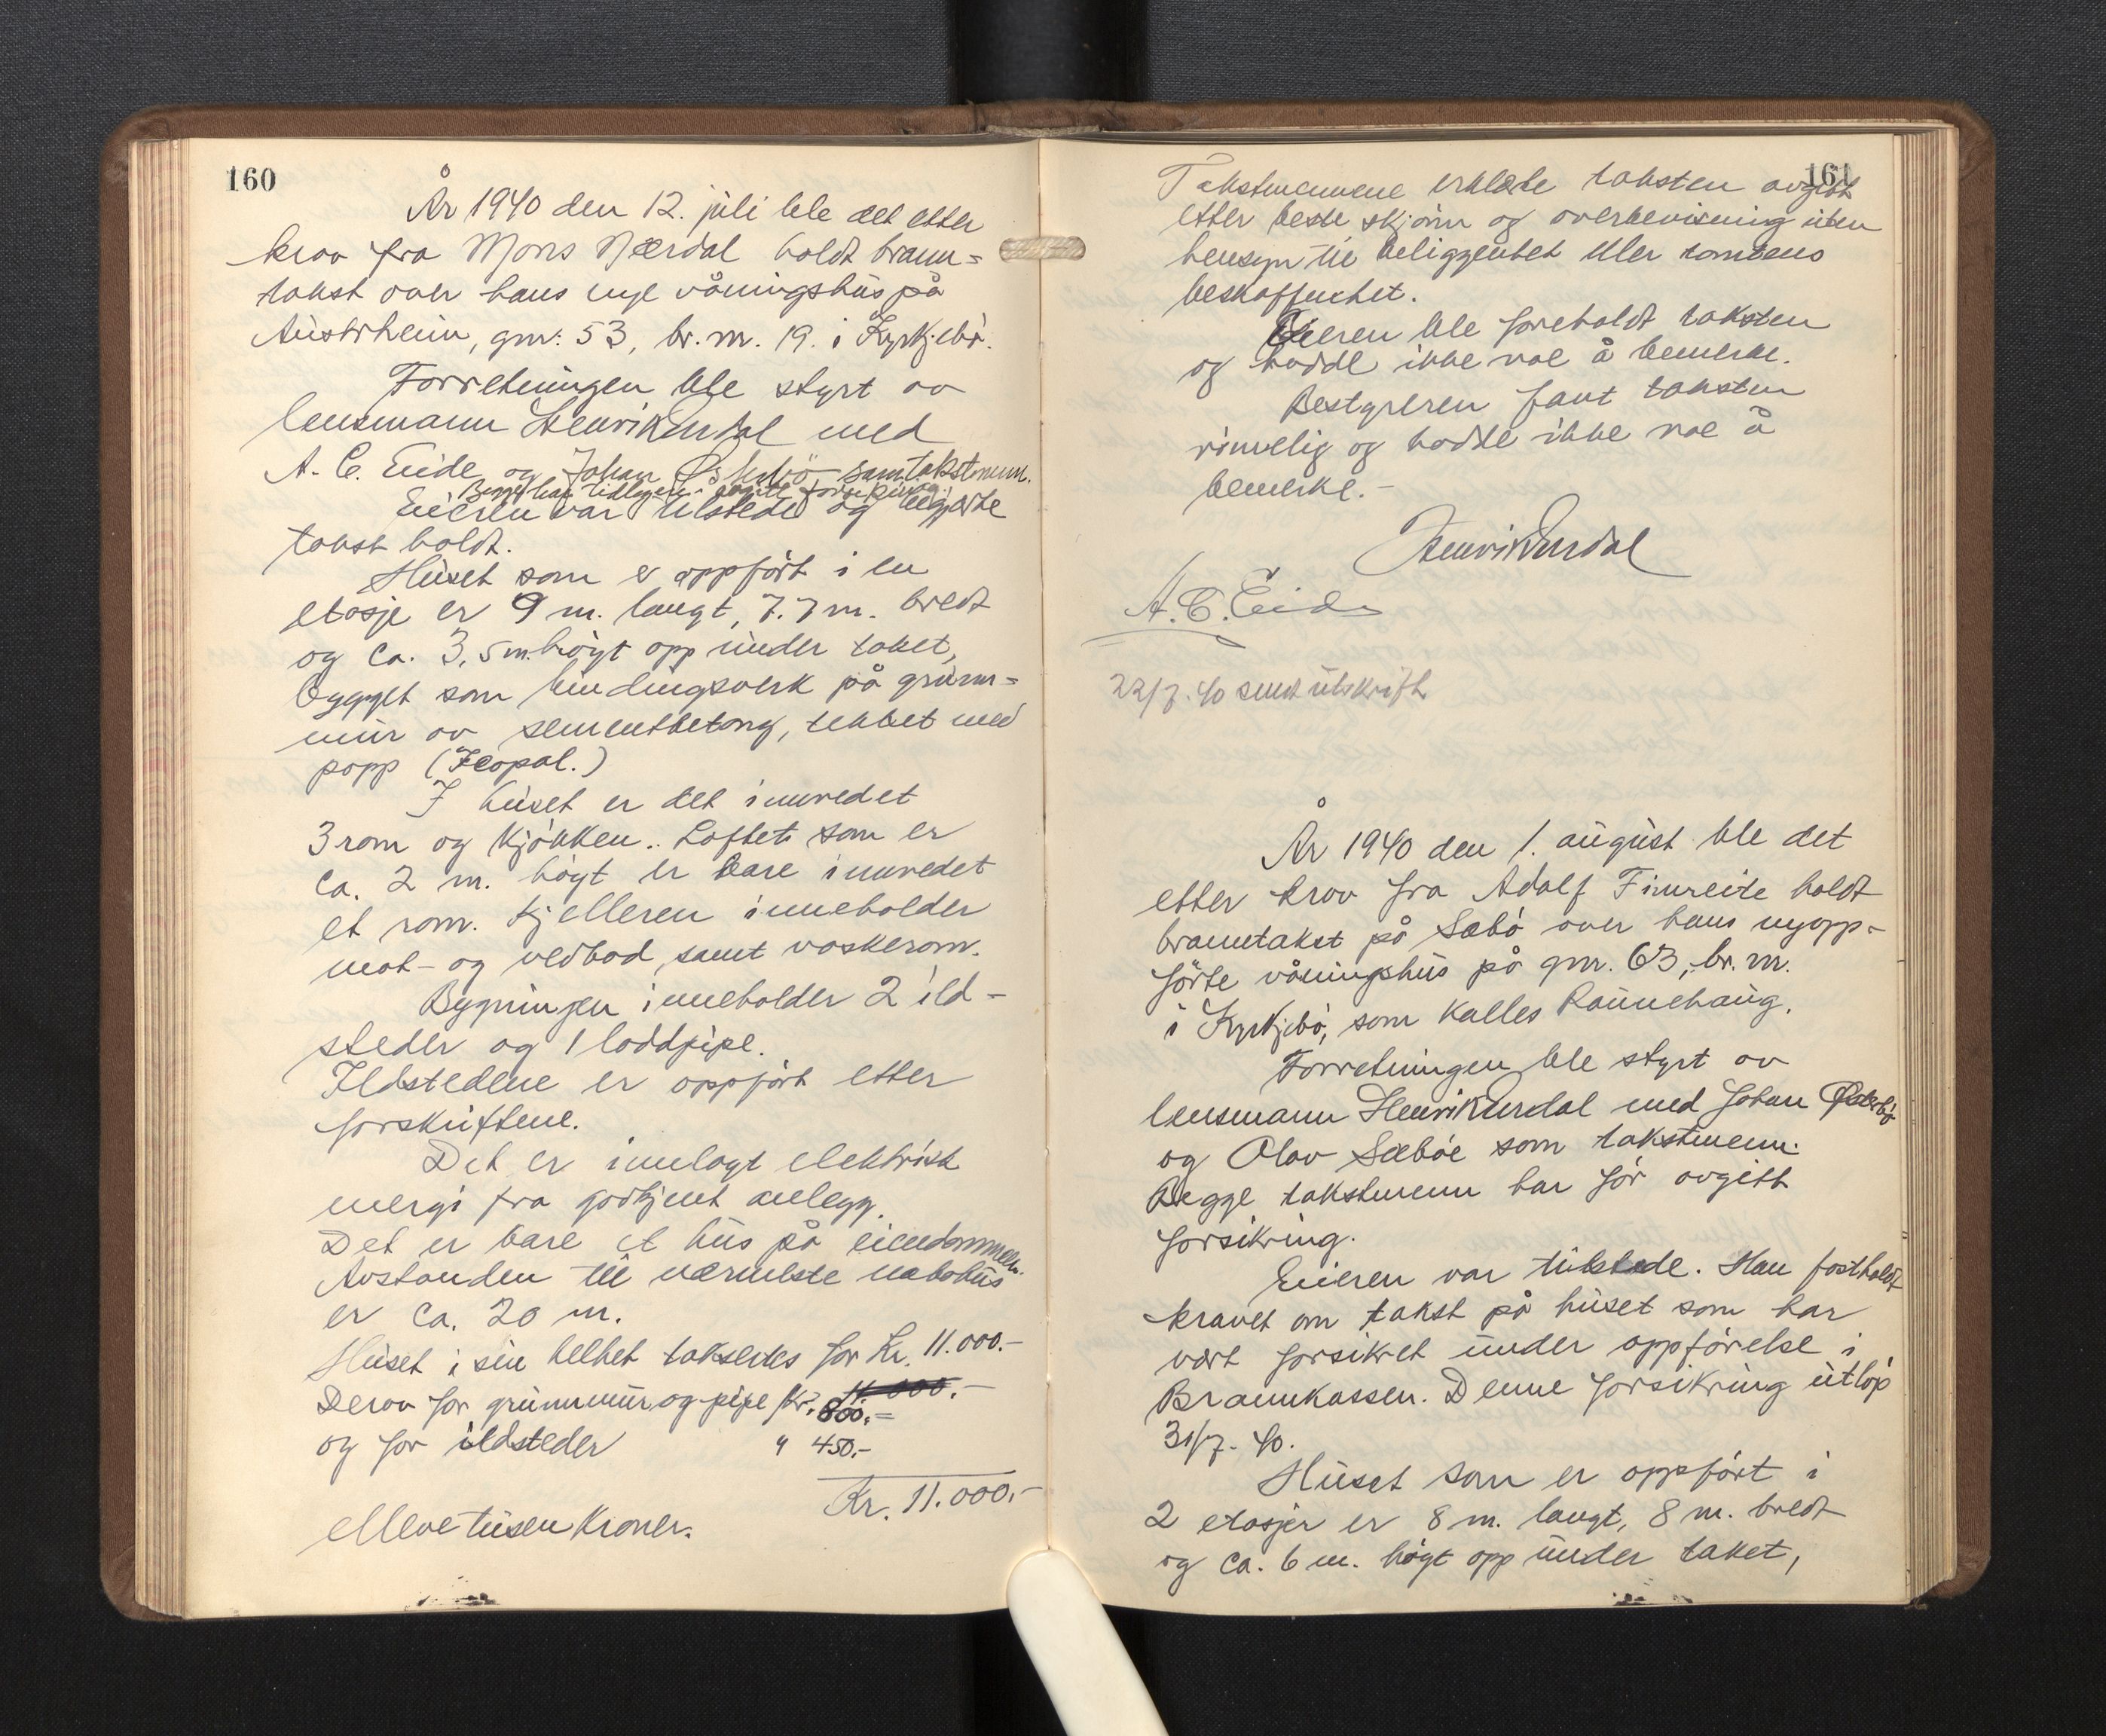 160
År 1940 den 12. juli ble det etter
krav fra Mons Nærdal holdt brann=
takst over hans nye våningshus på
Austrheim, gnr. 53, br. nr. 19. i Kyrkjebø.
Forretningen ble styrt av
lensmann Henrik Urdal med
A. C. Eide og Johan Østerbø som takstmenn.
Begge har tidligere avgitt forsikring.
Eieren var tilstede og begjærte
takst holdt.
Huset som er oppført i en
etasje er 9 m. langt, 7.7 m. bredt
og ca. 3,5 m. høgt opp under taket,
bygget som bindingsverk på grunn=
mur av sementbetong, tekket med
papp (Icopal.)
I huset er det innredet
3 rom og kjøkken.. Loftet som er
ca. 2 m. høgt er bare innredet
et rom. Kjelleren inneholder
mat- og vedbod, samt vaskerom.
Bygningen inneholder 2 ild-
steder og 1 loddpipe.
Ildstedene er oppført etter
forskriftene.
Det er innlagt elektrisk
energi fra godkjent anlegg.
Det er bare et hus på eiendommen.
Avstanden til nærmeste nabohus
er ca. 20 m.
Huset i sin helhet takseres for Kr. 11.000.-
Derav for grunnmur og pipe Kr. 11 000.-
800.=
og for ildsteder " 450.-
Kr. 11.000.-
elleve tusen kroner.
161
Takstmennene erklærte taksten avgitt
etter beste skjønn og overbevisning uten
hensyn til beliggenhet eller tomtens
beskaffenhet.
Eieren ble foreholdt taksten
og hadde ikke noe å bemerke.
Bestyreren fant taksten
rimelig og hadde ikke noe å
bemerke.-
Henrik Urdal
A. C. Eide
22/7. 40 sendt utskrift
År 1940 den 1. august ble det
etter krav fra Adolf Fimreite holdt
branntakst på Sæbø over hans nyopp-
førte våningshus på gnr. 63, br. nr.
i Kyrkjebø, som kalles Raunehaug.
Forretningen ble styrt av
lensmann Henrik Urdal med Johan Østerbø
og Olav Sæbøe som takstmenn.
Begge takstmenn har før avgitt
forsikring.
Eieren var tilstede. Han fastholdt
kravet om takst på huset som har
vært forsikret under oppførelse i
Brannkassen. Denne forsikring utløp
31/7. 40.
Huset som er oppført i
2 etasjer er 8 m. langt, 8 m. bredt
og ca. 6 m. høgt opp under taket,